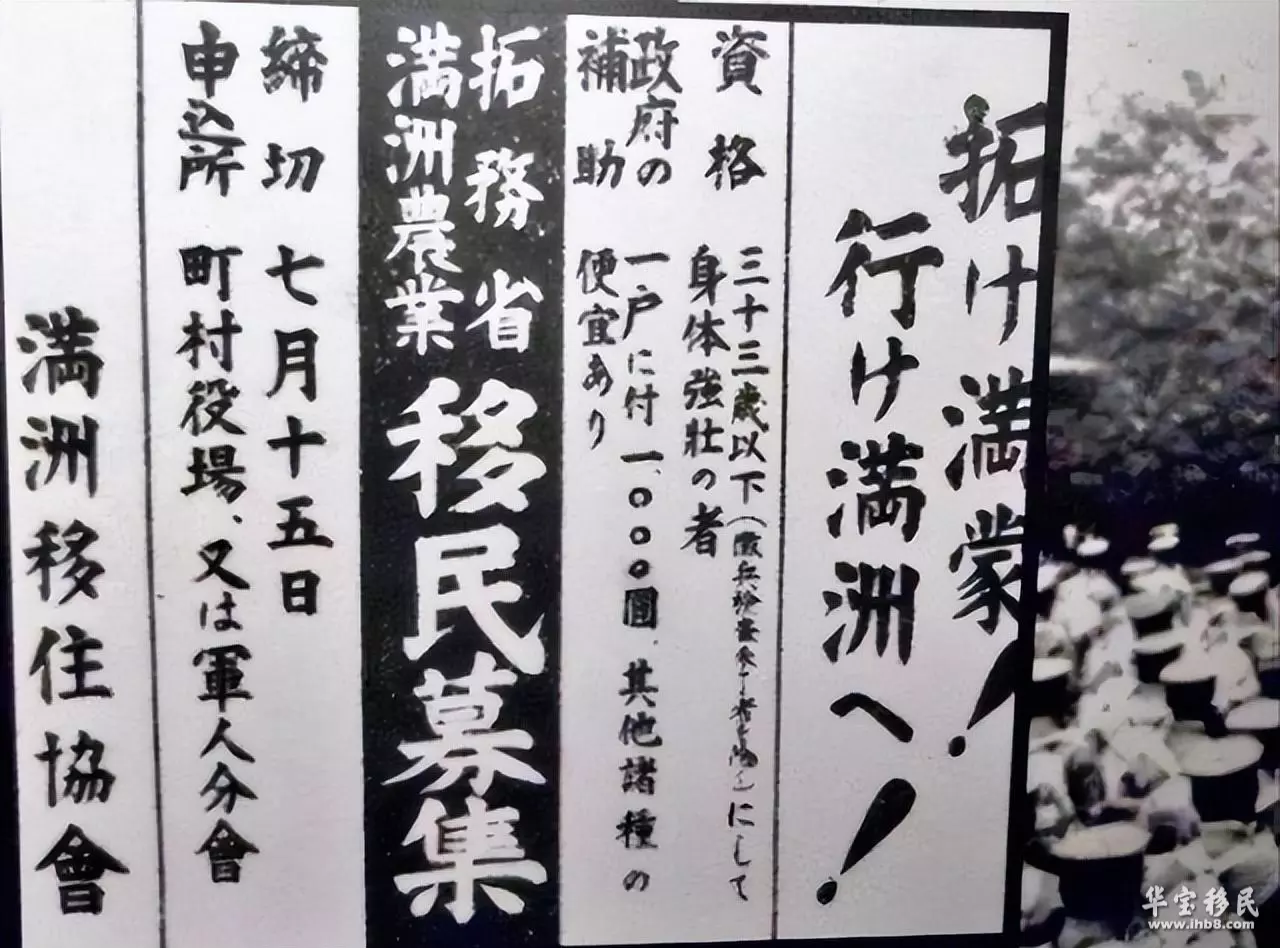 拓け満蒙！
行け満洲へ！
資格 三十三歳以下（徴兵検査未了者を除く）にして
身体強壮の者
政府の補助 一戸に付一、〇〇〇圓、其他諸種の
便宜あり
拓務省
満洲農業
移民募集
締切 七月十五日
申込所 町村役場、又は軍人分會
満洲移住協會
华宝移民
www.ihb8.com